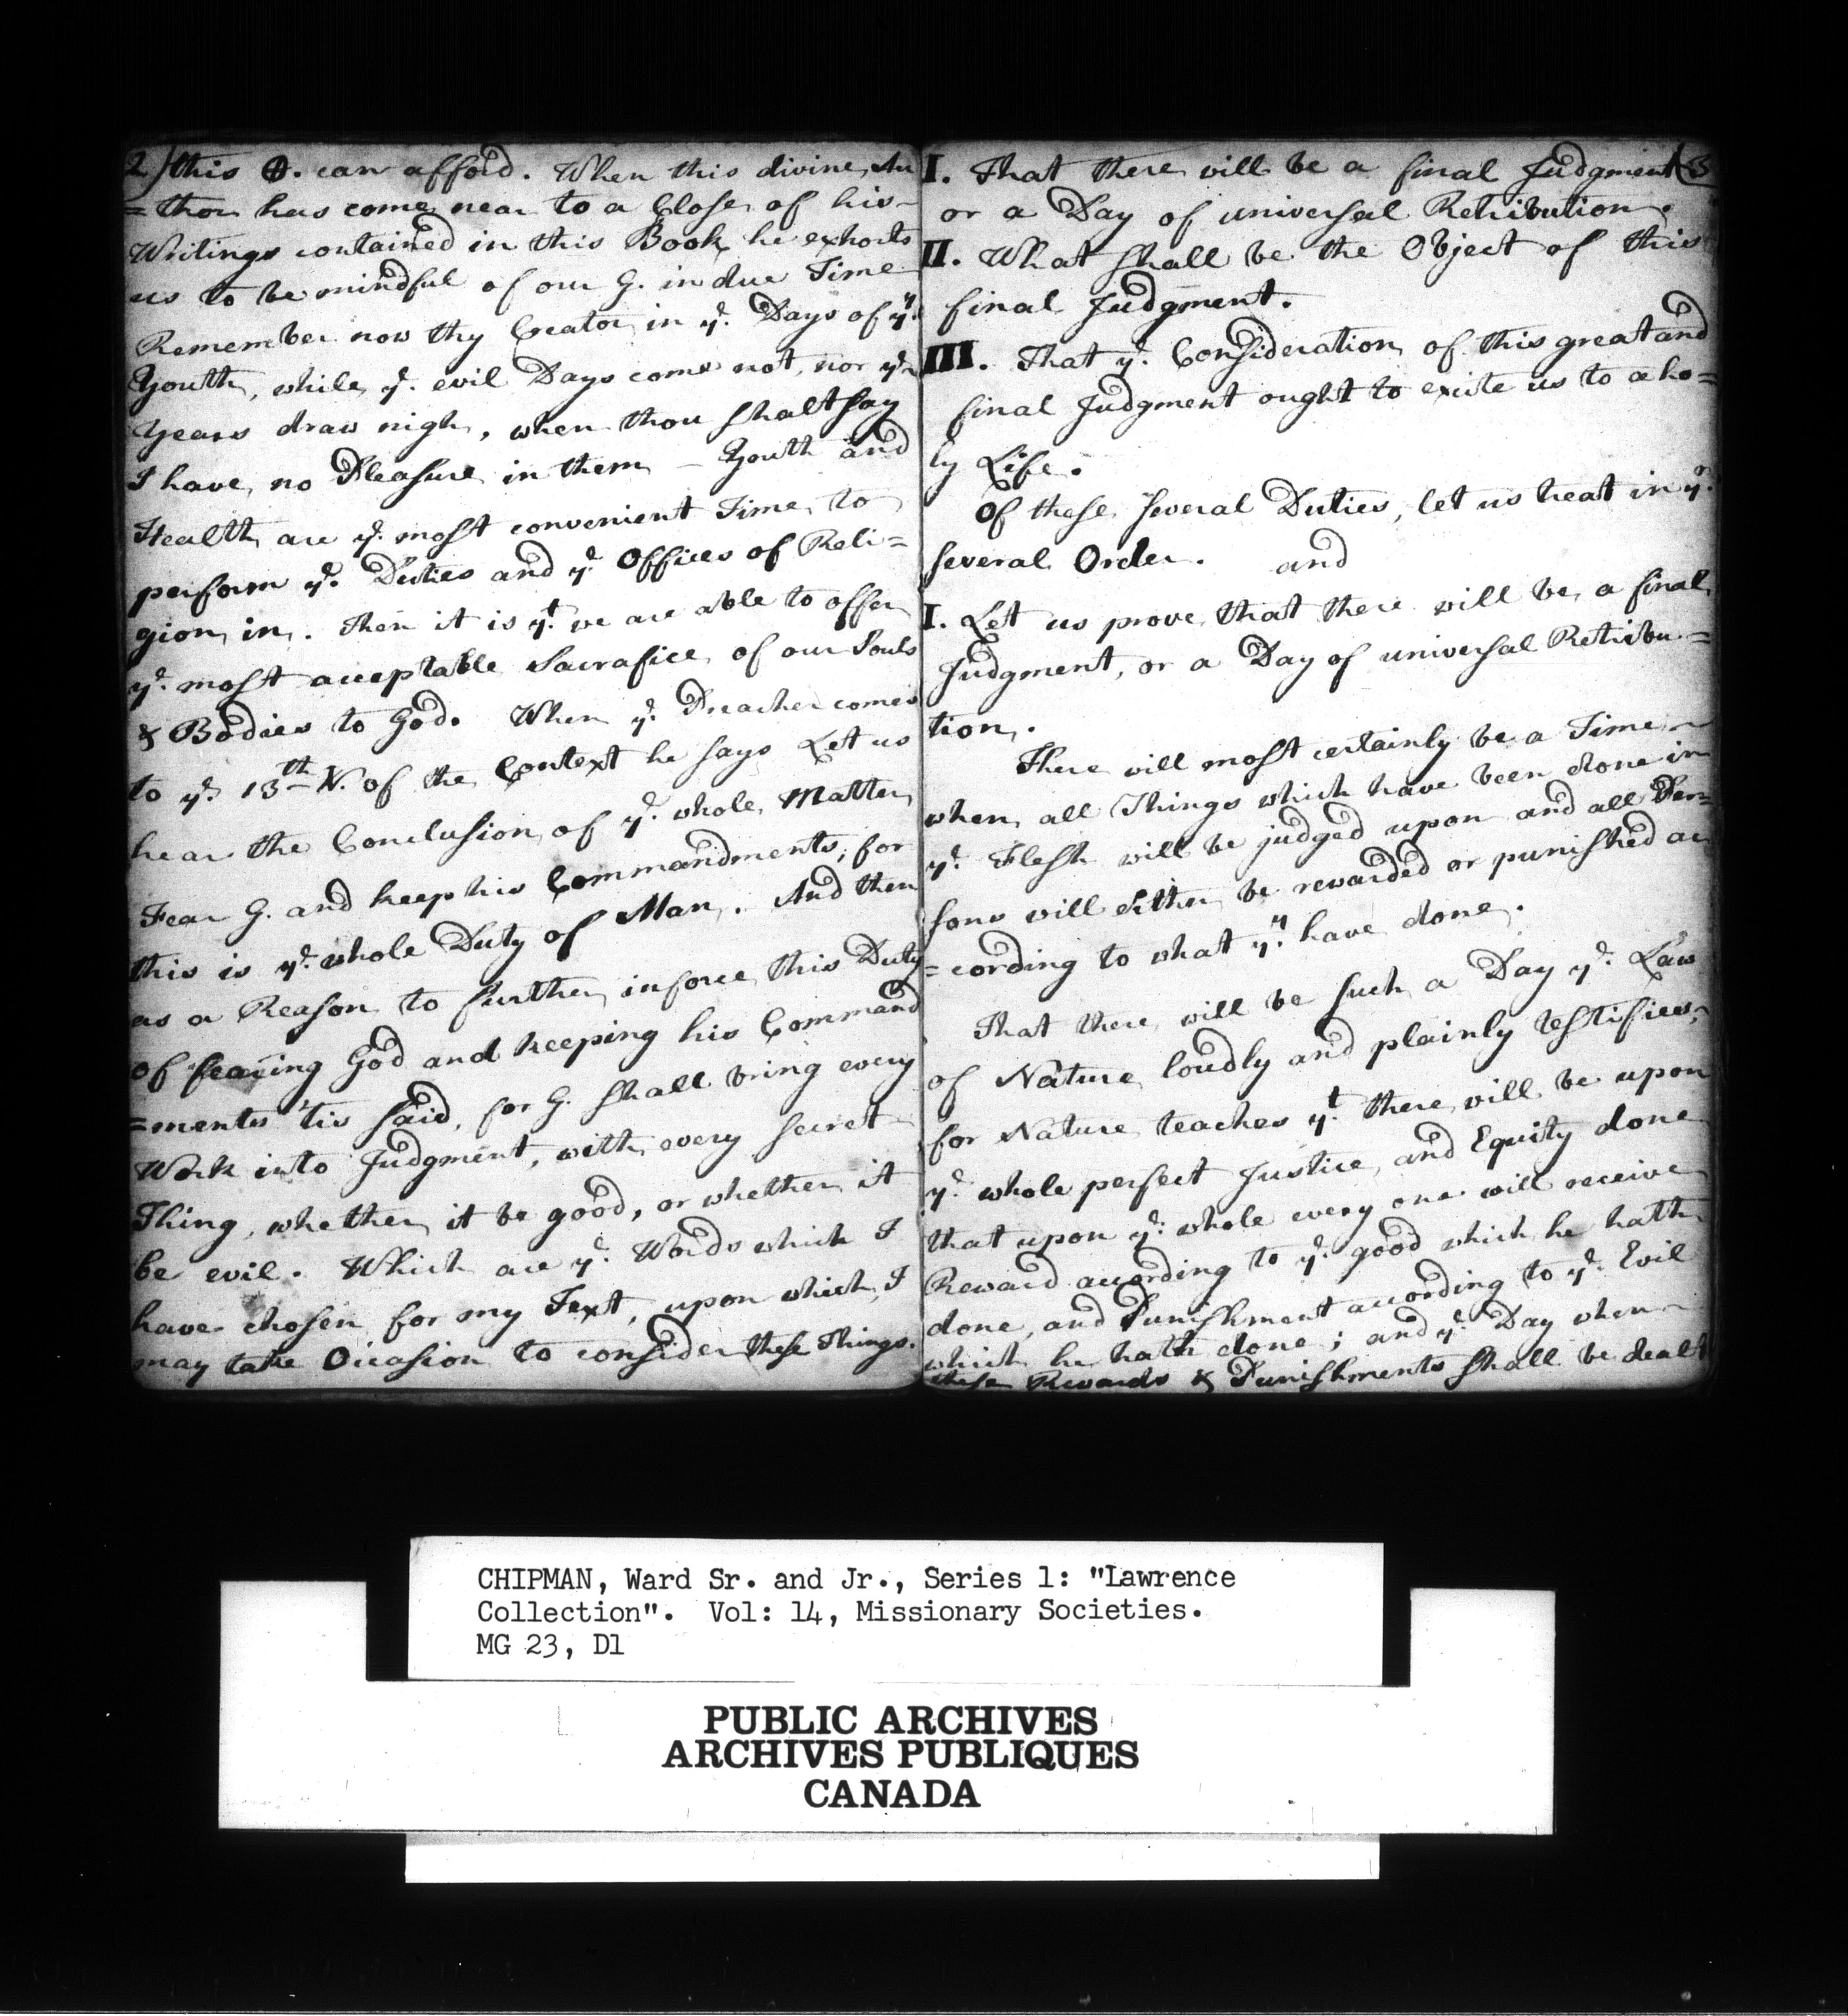 2) this ⊕. can afford. When this divine Au
=thor has come near to a Close of his
Writings contained in this Book he exhorts
us to be mindful of our G. in due Time
Remember now thy Creator in yᵉ. Days of yʸ.
Youth, while yᵉ. evil Days come not, nor yᵉ
Years draw nigh, when thou shalt say
I have no Pleasure in them – Youth and
Health are yᵉ. most convenient Time to
perform yᵉ. Duties and yᵉ Offices of Reli=
gion in. Then it is yᵗ. we are able to offer
yᵉ. most acceptable Sacrafice of our Souls
& Bodies to God. When yᵉ. Preacher comes
to yᵉ. 13th V. of the Context he says Let us
hear the Conclusion of yᵉ. whole Matter
Fear G. and keep his Commandments, for
this is yᵉ. whole Duty of Man. And then
as a Reason to further inforce this Duty
of fearing God and keeping his Command
=ments 'tis said, for G. shall bring every
Work into Judgment, with every secret
Thing, whether it be good, or whether it
be evil. Which are yᵉ. Words which I
have chosen for my Text, upon which I
may take Occasion to consider these Things.
(3
I. That there will be a final Judgment
or a Day of universal Retribution.
II. What shall be the Object of this
final Judgment.
III. That yᵉ. Consideration of this great and
final Judgment ought to excite us to a ho=
ly Life.
Of these several Duties, let us treat in yʳ.
several Order. and
I. Let us prove that there will be a final
Judgment, or a Day of universal Retribu=
tion.
There will most certainly be a Time
when all Things which have been done in
yᵉ. Flesh will be judged upon and all Per=
sons will either be rewarded or punished ac
=cording to what yʸ have done.
That there will be such a Day yᵉ. Law
of Nature loudly and plainly testifies,
for Nature teaches yᵗ. there will be upon
yᵉ. whole perfect Justice and Equity done
that upon yᵉ. whole every one will receive
Reward according to yᵉ. good which he hath
done, and Punishment according to yᵉ. Evil
which he hath done; and yᵉ. Day when
these Rewards & Punishments shall be dealt
CHIPMAN, Ward Sr. and Jr., Series 1: "Lawrence
Collection". Vol: 14, Missionary Societies.
MG 23, D1
PUBLIC ARCHIVES
ARCHIVES PUBLIQUES
CANADA